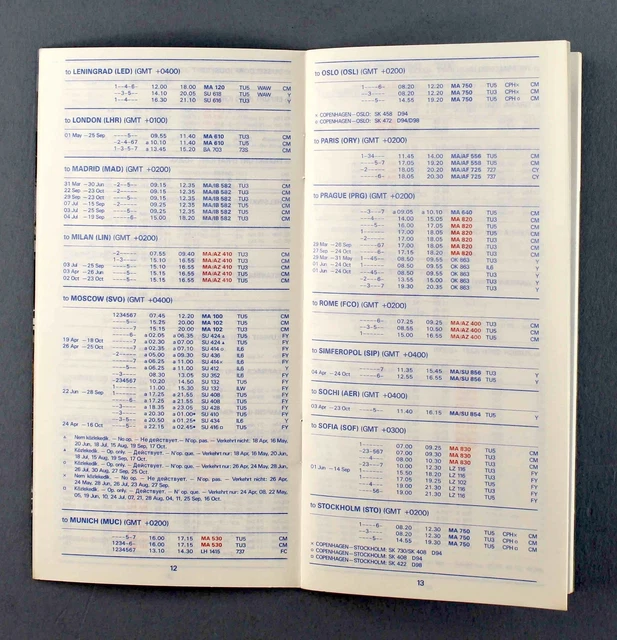 to LENINGRAD (LED) (GMT +0400)
1--4-6- 12.00 18.00 MA 120 TU5 WAW CM
--3-5-- 14.10 20.05 SU 618 TU5 WAW Y
1--4--- 16.30 21.10 SU 616 TU3 Y
to LONDON (LHR) (GMT +0100)
01 May – 25 Sep ----5-- 09.55 11.40 MA 610 TU3 CM
-2-4-67 10.10 11.40 MA 610 TU5 CM
1-3-5-7 13.45 15.20 BA 703 73S CM
to MADRID (MAD) (GMT +0200)
31 Mar – 30 Jun -2--5-- 09.15 12.35 MA/IB 582 TU3 CM
22 Sep – 23 Oct 09.15 12.35 MA/IB 582 TU3 CM
29 Sep – 23 Oct 09.15 12.35 MA/IB 582 TU3 CM
07 Jul – 15 Sep 09.15 12.35 MA/IB 582 TU3 CM
03 Jul – 25 Sep 09.25 12.35 MA/IB 582 TU3 CM
04 Jul – 19 Sep 15.00 18.20 MA/IB 582 TU3 CM
to MILAN (LIN) (GMT +0200)
-2----- 07.55 09.40 MA/AZ 410 TU3 CM
1-3---- 15.10 16.55 MA/AZ 410 TU5 CM
03 Jul – 25 Sep 15.10 16.55 MA/AZ 410 TU5 CM
03 Apr – 26 Jun 15.15 16.55 MA/AZ 410 TU5 CM
02 Oct – 23 Oct 15.15 16.55 MA/AZ 410 TU5 CM
to MOSCOW (SVO) (GMT +0400)
1234567 07.45 12.20 MA 100 TU5 CM
----5-- 15.25 20.00 MA 102 TU5 CM
------7 15.15 20.00 MA 102 TU5 CM
02.05 06.35 SU 424 TU5 FY
19 Apr – 18 Oct 02.30 07.00 SU 424 TU5 FY
26 Apr – 25 Oct 02.35 07.10 SU 414 IL6 FY
05.00 09.30 SU 436 IL6 FY
06.25 11.00 SU 414 IL6 FY
06.25 11.00 SU 412 IL6 Y
08.30 13.05 SU 352 IL6 FY
-234567 10.20 14.50 SU 132 TU5 FY
11.00 15.30 SU 132 ILW FY
22 Jun – 28 Sep 17.25 21.55 SU 408 TU5 FY
17.25 21.55 SU 408 TU5 FY
18.35 23.05 SU 428 TU5 FY
20.30 01.00 SU 410 TU5 FY
20.50 01.25 SU 434 IL6 Y
24 Apr – 16 Oct 22.15 02.45 SU 416 TU5 FY
Nem közlekedik. – No op. – Не действует. – N'op. pas. – Verkehrt nicht: 18 Apr, 16 May,
20 Jun, 18 Jul, 15 Aug, 19 Sep, 17 Oct.
Közlekedik. – Op. only. – Действует. – N'op. que. – Verkehrt nur: 18 Apr, 16 May, 20 Jun,
18 Jul, 15 Aug, 19 Sep, 17 Oct.
Közlekedik. – Op. only. – Действует. – N'op. que. – Verkehrt nur: 26 Apr, 24 May, 28 Jun,
26 Jul, 30 Aug, 27 Sep, 25 Oct.
Nem közlekedik. – No op. – Не действует. – N'op. pas. – Verkehrt nicht: 26 Apr,
24 May, 28 Jun, 26 Jul, 23 Aug, 27 Sep.
Közlekedik. – Op. only. – Действует. – N'op. que. – Verkehrt nur: 24 Apr, 08, 22 May,
05, 19 Jun, 10, 24 Jul, 07, 21, 28 Aug, 04, 11, 25 Sep, 16 Oct.
to MUNICH (MUC) (GMT +0200)
----5-7 16.00 17.15 MA 530 TU5 CM
1234-6- 16.00 17.15 MA 530 TU3 CM
1234567 13.10 14.30 LH 1415 737 FC
12
to OSLO (OSL) (GMT +0200)
1----6- 08.20 12.20 MA 750 TU5 CPH CM
--3---- 08.20 12.20 MA 750 TU3 CM
----5-- 14.55 19.20 MA 750 TU5 CPH CM
COPENHAGEN – OSLO: SK 458 D94
COPENHAGEN – OSLO: SK 472 D94/D98
to PARIS (ORY) (GMT +0200)
1-34--- 11.45 14.00 MA/AF 558 TU5 CM
----5-7 17.05 19.20 MA/AF 556 TU5 CM
-2----- 18.05 20.20 MA/AF 725 737 CY
-----6- 18.05 20.30 MA/AF 725 727 CY
to PRAGUE (PRG) (GMT +0200)
--3--7 09.05 10.10 MA 640 TU5 CM
14.00 15.05 MA 820 TU3 CM
16.00 17.05 MA 820 TU5 CM
17.00 18.05 MA 820 TU3 CM
17.00 18.05 MA 820 TU5 CM
17.00 18.05 MA 820 TU3 CM
17.15 18.20 MA 820 TU3 CM
08.50 09.55 OK 863 TU5 Y
08.50 09.55 OK 863 IL6 Y
08.50 09.55 OK 863 TU3 Y
13.55 21.00 OK 863 TU3 Y
19.30 20.35 OK 863 TU3 Y
to ROME (FCO) (GMT +0200)
-----6- 07.25 09.25 MA/AZ 400 TU3 CM
----5-- 08.55 10.50 MA/AZ 400 TU3 CM
1--3--- 15.00 16.55 MA/AZ 400 TU5 CM
to SIMFEROPOL (SIP) (GMT +0400)
------7 11.35 15.45 MA/SU 856 TU3 Y
04 Apr – 24 Oct -----6- 12.55 16.55 MA/SU 856 TU5 Y
to SOCHI (AER) (GMT +0400)
03 Apr – 23 Oct ----5-- 11.40 16.15 MA/SU 854 TU5 Y
to SOFIA (SOF) (GMT +0300)
1------ 07.00 09.25 MA 830 TU5 CM
-23-567 07.00 09.30 MA 830 TU3 CM
---4--- 08.00 10.30 MA 830 TU3 CM
-23---7 10.00 12.30 LZ 116 TU3 FY
01 Jun – 14 Sep 15.50 18.20 LZ 116 TU3 FY
17.05 19.25 LZ 102 TU5 FY
19.00 21.30 LZ 116 TU3 FY
19.00 21.30 LZ 116 TU5 FY
to STOCKHOLM (STO) (GMT +0200)
08.20 12.30 MA 750 TU5 CPH CM
08.20 12.30 MA 750 TU3 CM
14.55 19.30 MA 750 TU5 CPH CM
COPENHAGEN – STOCKHOLM: SK 730/SK 408 D94
COPENHAGEN – STOCKHOLM: SK 408 D94
COPENHAGEN – STOCKHOLM: SK 422 D98
13